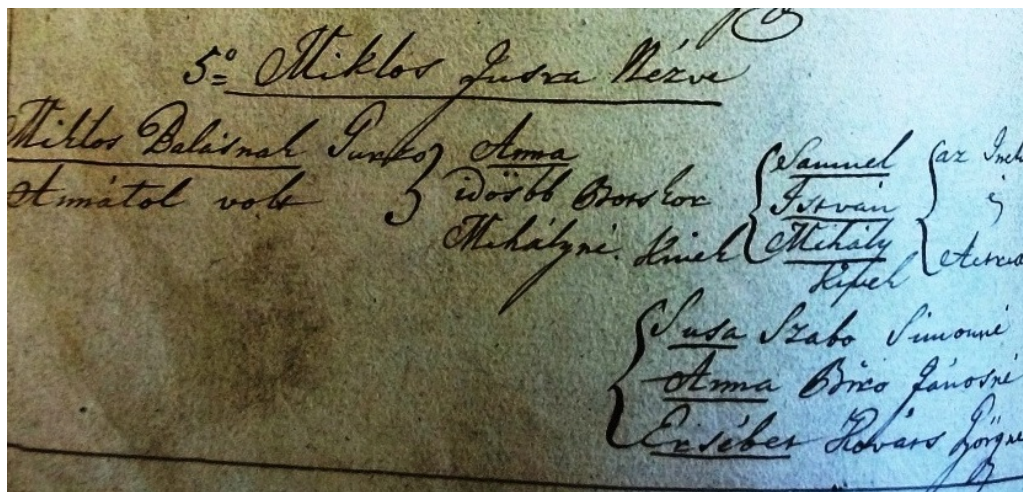 5º Miklos Jussra Nézve
Miklos Balásnak
Annátol volt
Anna
idösbb Borsbor
Mihályné Kinek
Samuel
István
Mihály
az
Susa Szabo Simonné
Anna Biro Jánosné
Ersébet Kováts Györgyné